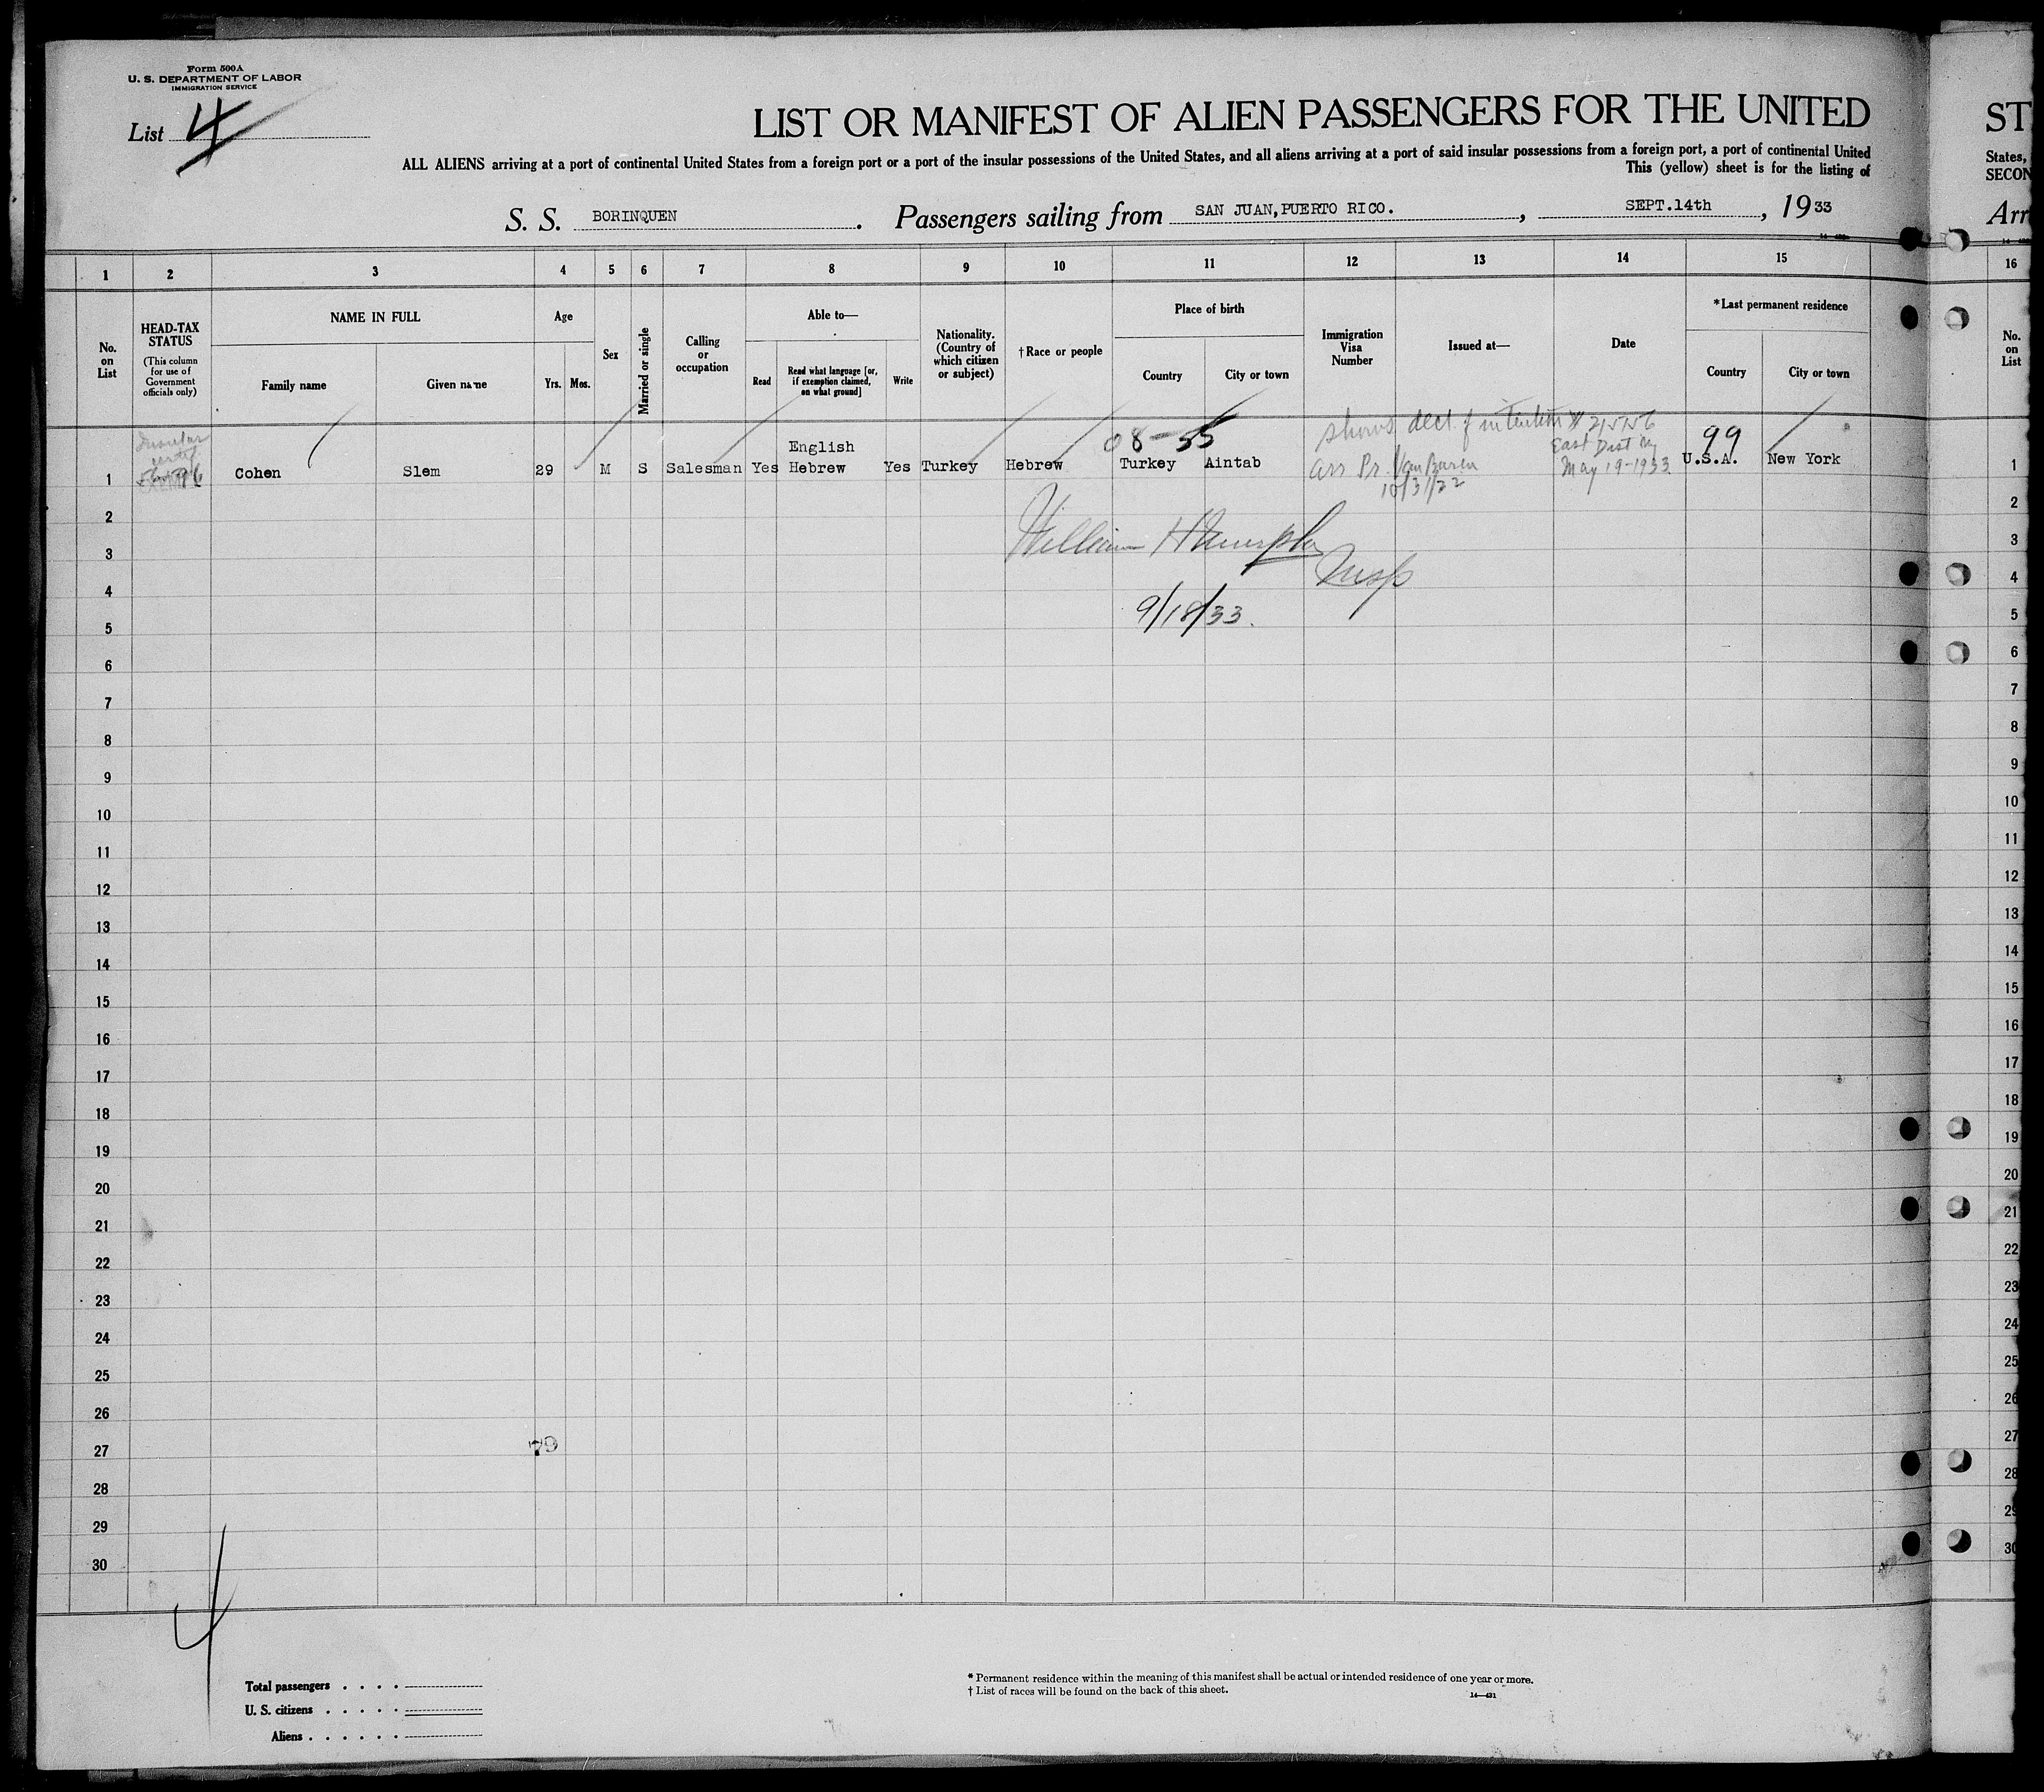 Form 500A
U. S. DEPARTMENT OF LABOR
IMMIGRATION SERVICE
List 4
LIST OR MANIFEST OF ALIEN PASSENGERS FOR THE UNITED
ALL ALIENS arriving at a port of continental United States from a foreign port or a port of the insular possessions of the United States, and all aliens arriving at a port of said insular possessions from a foreign port, a port of continental United
This (yellow) sheet is for the listing of
S. S. BORINQUEN. Passengers sailing from SAN JUAN, PUERTO RICO., SEPT.14th, 1933
ST
States,
SECON
Arr
1 2 3 4 5 6 7 8 9 10 11 12 13 14 15 16
No. on List
HEAD-TAX STATUS
(This column for use of Government officials only)
NAME IN FULL
Family name
Given name
Age
Yrs. Mos.
Sex
Married or single
Calling or occupation
Able to—
Read
Read what language [or, if exemption claimed, on what ground]
Write
Nationality. (Country of which citizen or subject)
†Race or people
Place of birth
Country
City or town
Immigration Visa Number
Issued at—
Date
*Last permanent residence
Country
City or town
No. on List
Insular certif
08-55
shows decl. of intention # 215156
East Dist NY
May 19-1933
arr Pr. Van Buren
10/31/22
99
English
1 Cohen Slem 29 M S Salesman Yes Hebrew Yes Turkey Hebrew Turkey Aintab U.S.A. New York 1
2 2
3 William H 3
4 Insp 4
5 9/18/33. 5
6 6
7 7
8 8
9 9
10 10
11 11
12 12
13 13
14 14
15 15
16 16
17 17
18 18
19 19
20 20
21 21
22 22
23 23
24 24
25 25
26 26
27 79 27
28 28
29 29
30 30
4
Total passengers . . . .
U. S. citizens . . . . .
Aliens . . . . . .
* Permanent residence within the meaning of this manifest shall be actual or intended residence of one year or more.
† List of races will be found on the back of this sheet.
14—431